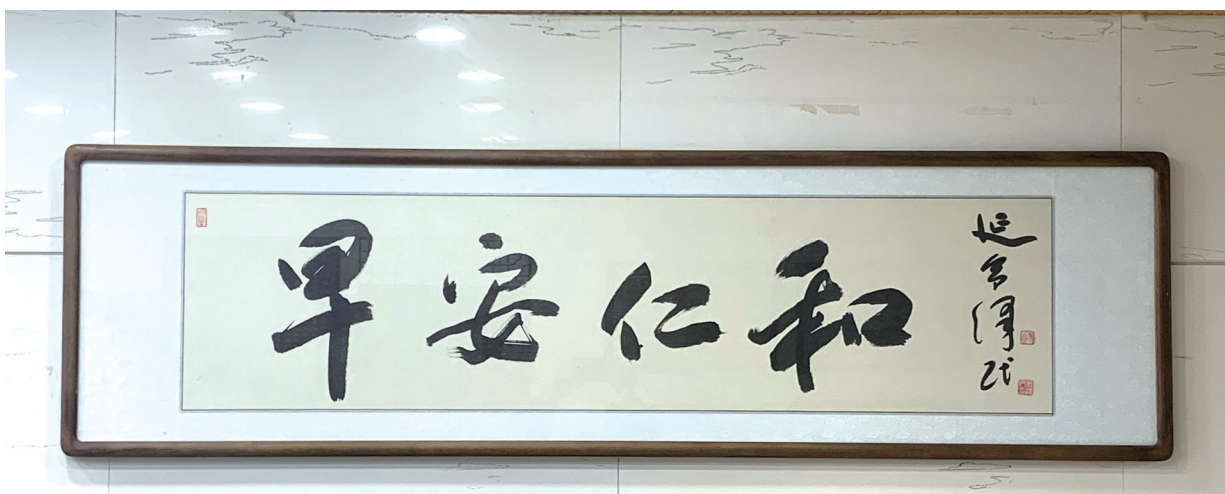 早安仁和
延